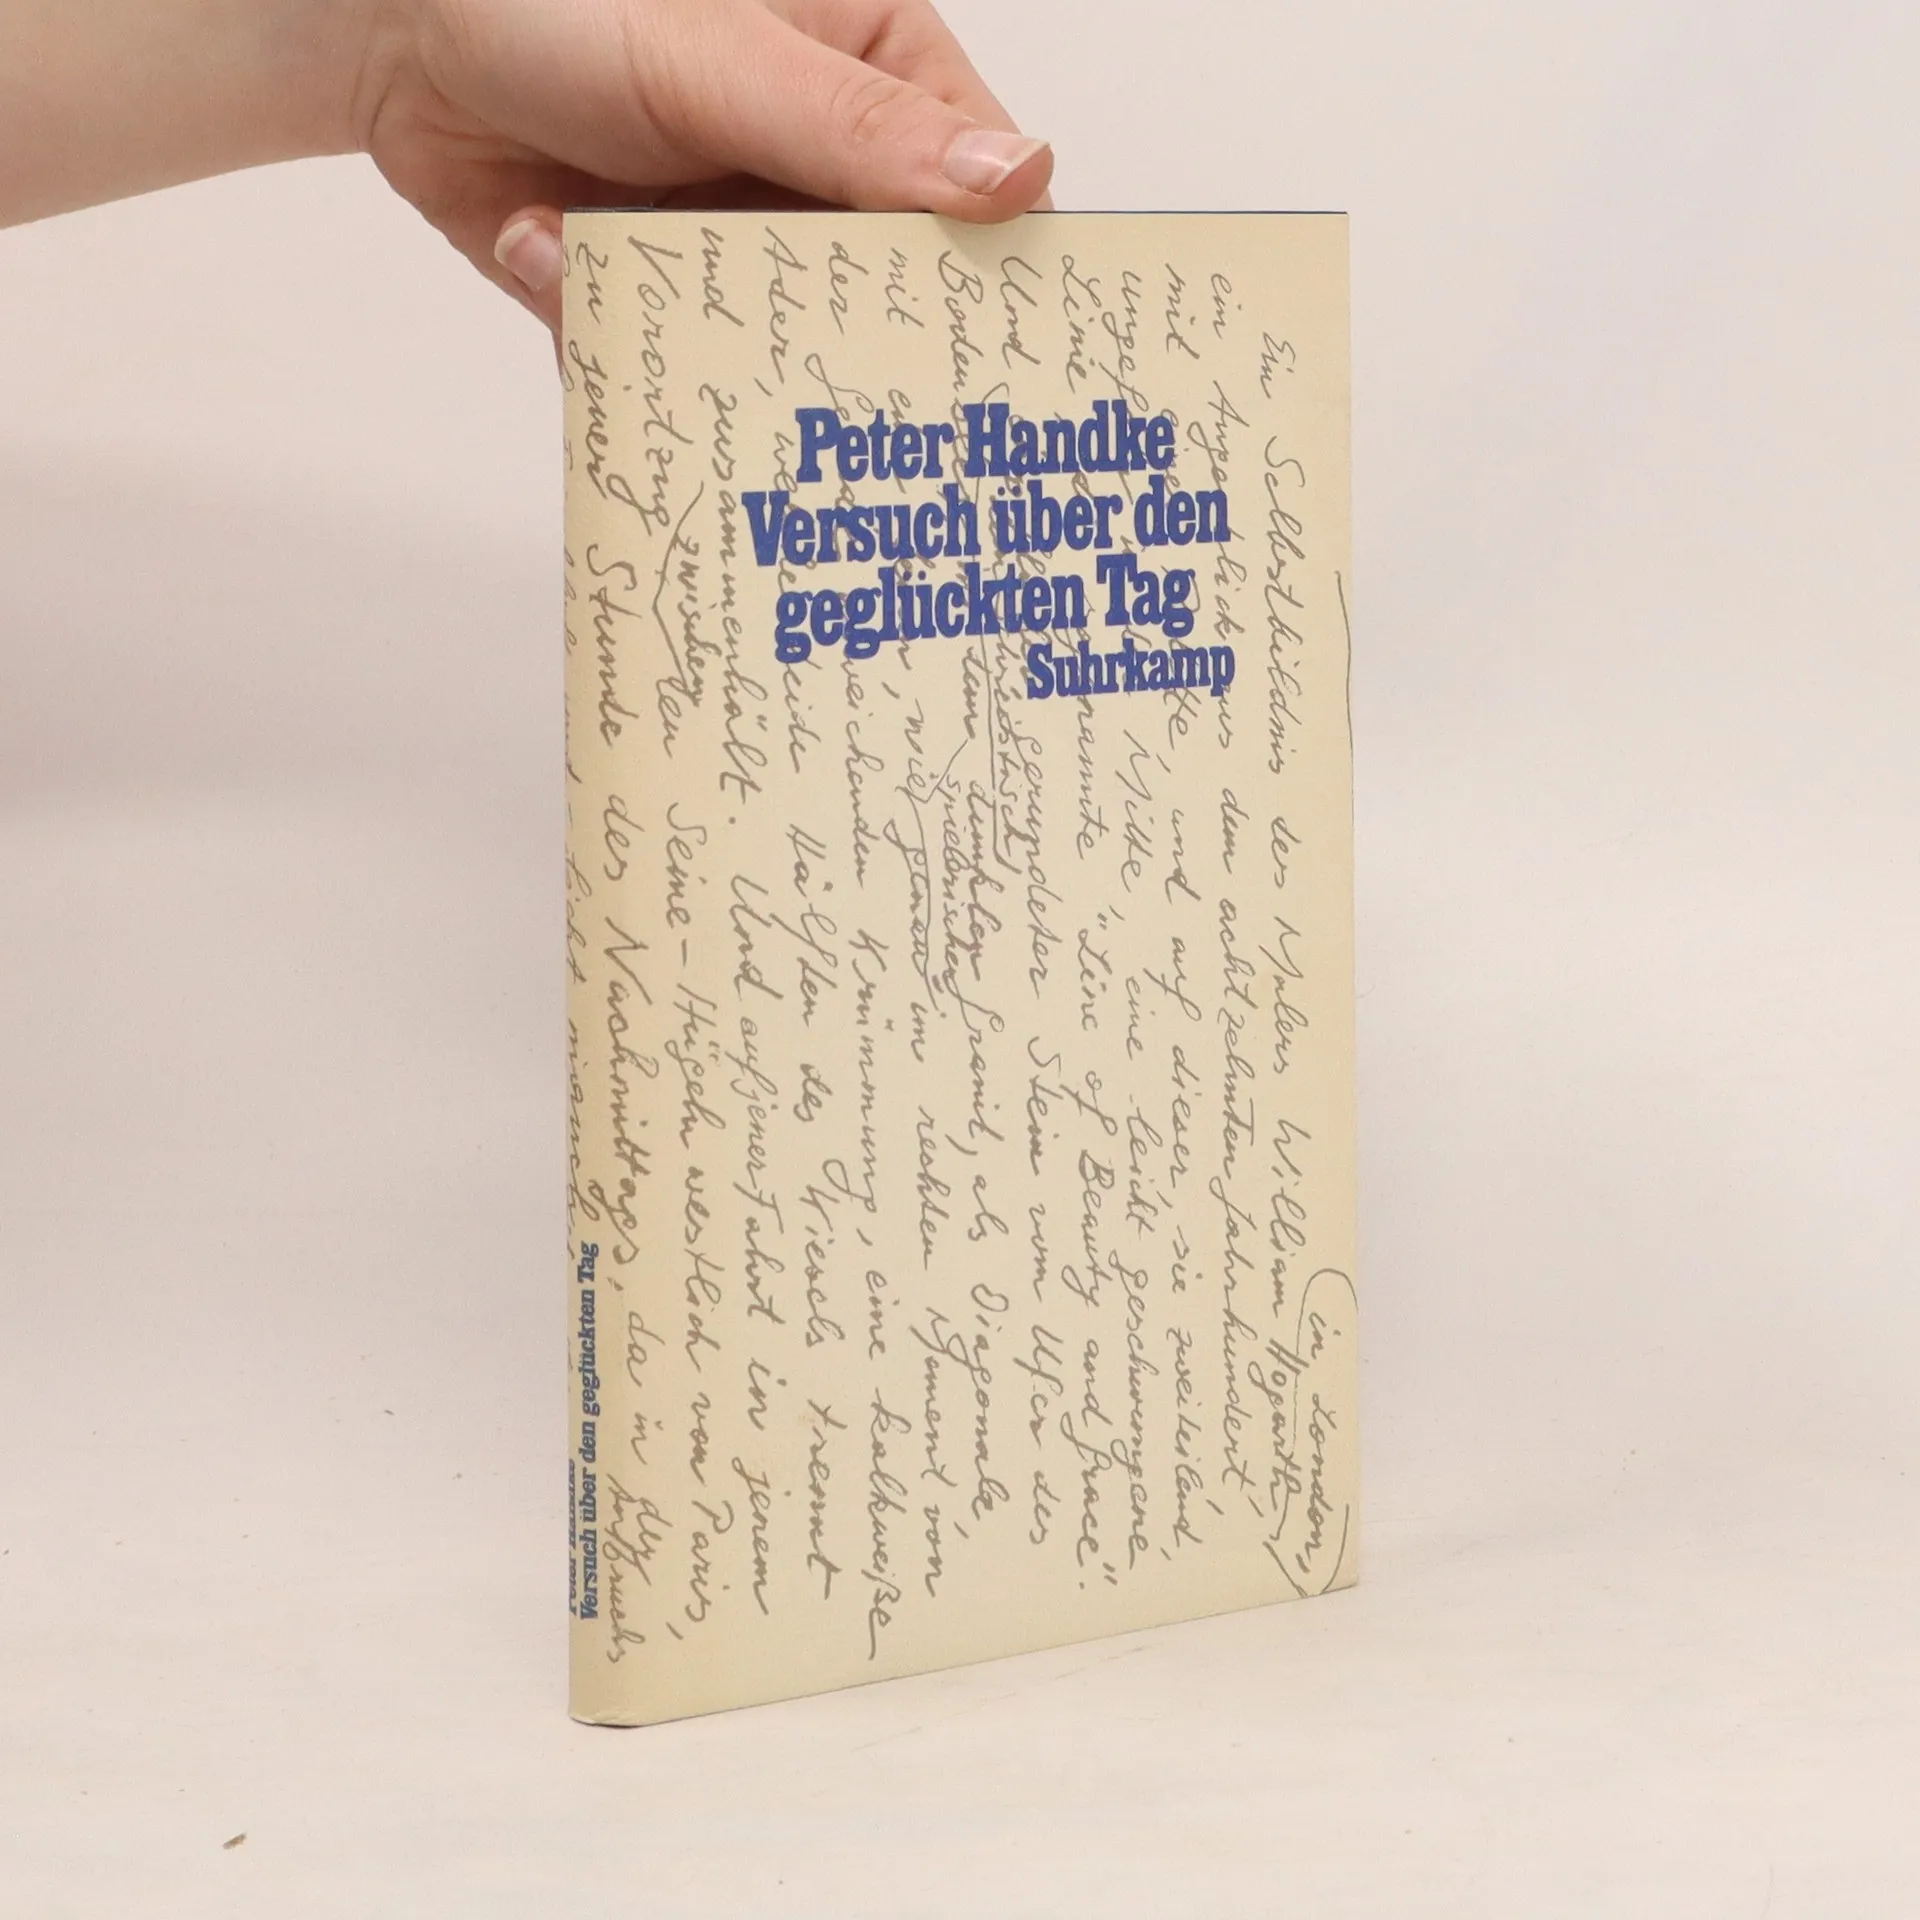 Peter Handke
Versuch über den
geglückten Tag
Suhrkamp
in London,
Ein Selbstbildnis des Malers William Hogarth,
ein Augenblick aus dem achtzehnten Jahrhundert,
mit einer Palette, und auf dieser, sie zweiteilend,
ungefähr in der Mitte, eine leicht geschwungene
Linie, die sogenannte "Line of Beauty and Grace".
Und gerundeter Stein vom Ufer des
Bodensees, dem dunklen Granit, als Diagonale,
spielerischen
mit einer, wie genau im rechten Moment von
der Gerade weichenden Krümmung, eine kalkweiße
Ader, welche beide Hälften des Kiesels trennt
und zusammenhält. Und auf jener Fahrt in jenem
Vorortzug zwischen den Seine-Hügeln westlich von Paris,
zu jener Stunde des Nachmittags, da in der
Versuch über den geglückten Tag